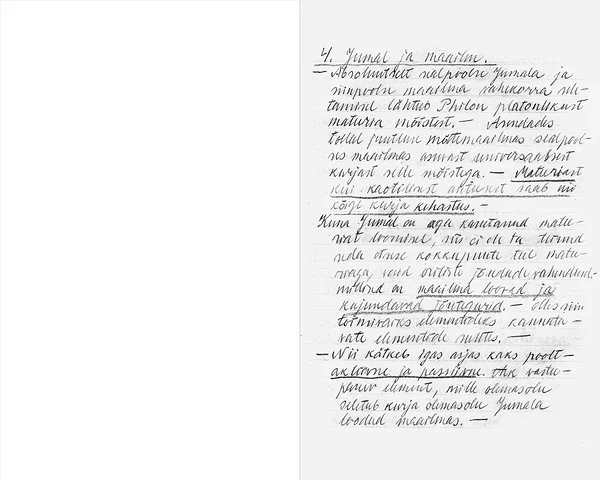 4. Jumal ja maailm.
— Absoluutselt sealpoolse Jumala ja
siinpoolse maailma vahekorra sele-
tamisel lähtub Philon platonlikust
mateeria mõistest. — Arendades
tollal juutluse mõttemaailmas sealpool-
ses maailmas asuvast universaalsest
kurjast selle mõistega. — Mateeriast
kui kaootilisest saab nii
kõige kurja kehastus. —
Kuna Jumal on aga kasutanud mate-
riat loomisel, siis ei ole ta teinud
seda otse kokkupuute teel mate-
riaga, vaid jõudude vahendusel-
millised on maailma loovad ja
kujundavad jõutegurid. — Olles siin
toimivaiks elementideks kannata-
vate elementide suhtes. —
— Nii kätkeb igas asjas kaks poolt —
aktiivne ja passiivne. Ühk vastu-
panev element, mille olemasolu
seletub kurja olemasolu Jumala
loodud maailmas. —